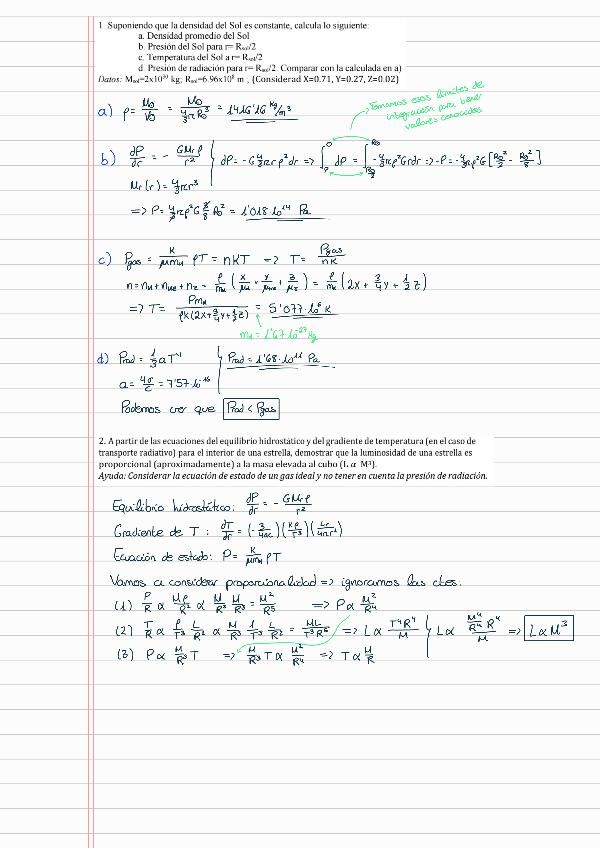 1 Suponiendo que la densidad del Sol es constante, calcula lo siguiente:
a. Densidad promedio del Sol
b. Presión del Sol para r= Rsol/2
c. Temperatura del Sol a r= Rsol/2
d. Presión de radiación para r= Rsol/2. Comparar con la calculada en a)
Datos: Msol=2x10³⁰ kg; Rsol=6.96x10⁸ m , (Considerad X=0.71, Y=0.27, Z=0.02)
Tomamos esos límites de
integración para tener
valores conocidos
a) ρ = M⊙/V⊙ = M⊙/(4/3 π R⊙³) = 1416'16 kg/m³
b) dP/dr = - GMrρ/r² } dP = -G 4/3 π r ρ² dr => ∫_P^0 dP = ∫_{R⊙/2}^{R⊙} -4/3 πρ²G r dr => -P = -4/3 πρ²G [R⊙²/2 - R⊙²/8]
Mr(r) = 4/3 πr³
=> P = 4/3 πρ²G 3/8 R⊙² = 1'018·10¹⁴ Pa
c) Pgas = K/(μmH) ρT = nKT => T = Pgas/(nK)
n = nH + nHe + nZ = ρ/mH (X/μH + Y/μHe + Z/μZ) = ρ/mH (2X + 3/4 Y + 1/2 Z)
=> T = PmH/(ρK(2X+3/4Y+1/2Z)) = 5'077·10⁶ K
mH = 1'67·10⁻²⁷ Kg
d) Prad = 1/3 aT⁴ } Prad = 1'68·10¹¹ Pa
a = 4σ/c = 7'57·10⁻¹⁶
Podemos ver que Prad < Pgas
2. A partir de las ecuaciones del equilibrio hidrostático y del gradiente de temperatura (en el caso de
transporte radiativo) para el interior de una estrella, demostrar que la luminosidad de una estrella es
proporcional (aproximadamente) a la masa elevada al cubo (L α M³).
Ayuda: Considerar la ecuación de estado de un gas ideal y no tener en cuenta la presión de radiación.
Equilibrio hidrostático: dP/dr = - GMrρ/r²
Gradiente de T: dT/dr = (-3/4ac)(Kρ/T³)(Lr/4πr²)
Ecuación de estado: P = K/(μmH) ρT
Vamos a considerar proporcionalidad => ignoramos las ctes:
(1) P/R ∝ Mρ/R² ∝ M/R² M/R³ = M²/R⁵ => P ∝ M²/R⁴
(2) T/R ∝ ρ/T³ L/R² ∝ M/R³ 1/T³ L/R² = ML/(T³R⁵) => L ∝ T⁴R⁴/M } L ∝ (M⁴/R⁴ R⁴)/M => L ∝ M³
(3) P ∝ M/R³ T => M/R³ T ∝ M²/R⁴ => T ∝ M/R